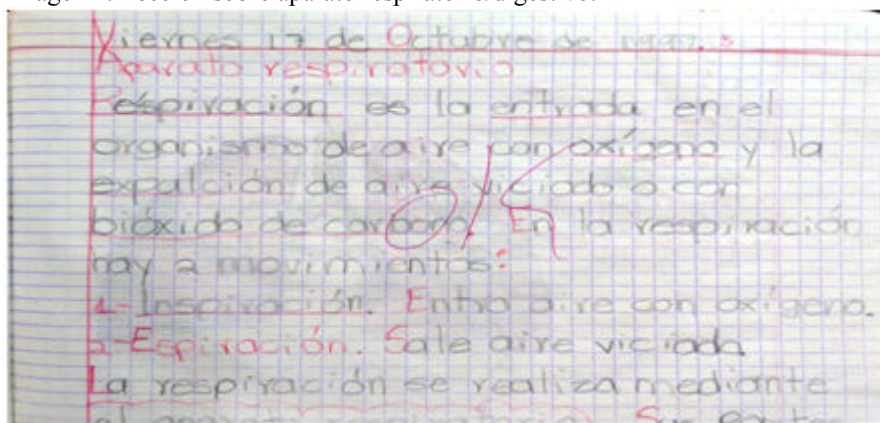 Viernes 17 de Octubre de 1997.
Aparato respiratorio
Respiración es la entrada en el
organismo de aire con oxígeno y la
expulción de aire viciado o con
bióxido de carbono. En la respiración
hay 2 movimientos:
1-Inspiración. Entra aire con oxígeno.
2-Espiración. Sale aire viciado.
La respiración se realiza mediante
el aparato respiratorio. Sus partes